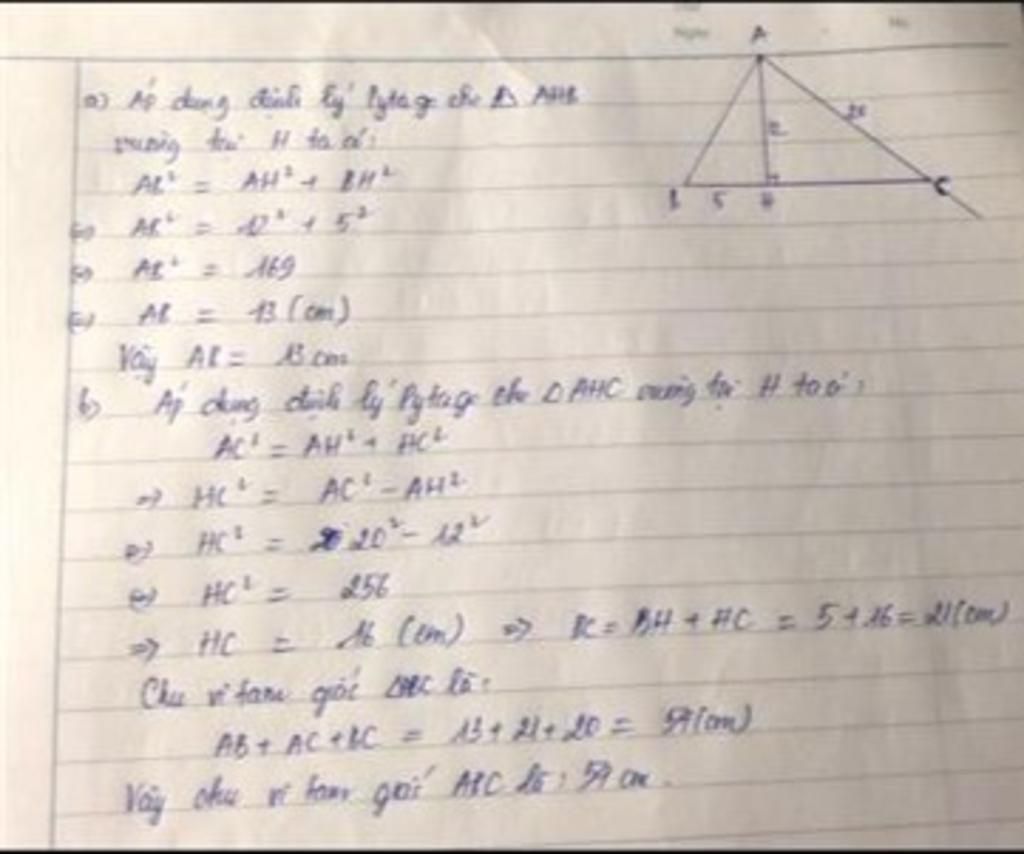 Ngày No.
A
20
12
B 5 H C
a) Áp dụng định lý Pytago cho Δ AHB
vuông tại H ta có:
AB² = AH² + BH²
(=) AB² = 12² + 5²
(=) AB² = 169
(=) AB = 13 (cm)
Vậy AB = 13 cm
b) Áp dụng định lý Pytago cho Δ AHC vuông tại H ta có:
AC² = AH² + HC²
=> HC² = AC² - AH²
(=) HC² = 20² - 12²
(=) HC² = 256
=> HC = 16 (cm) => BC = BH + HC = 5 + 16 = 21 (cm)
Chu vi tam giác ABC là:
AB + AC + BC = 13 + 21 + 20 = 54 (cm)
Vậy chu vi tam giác ABC là: 54 cm.